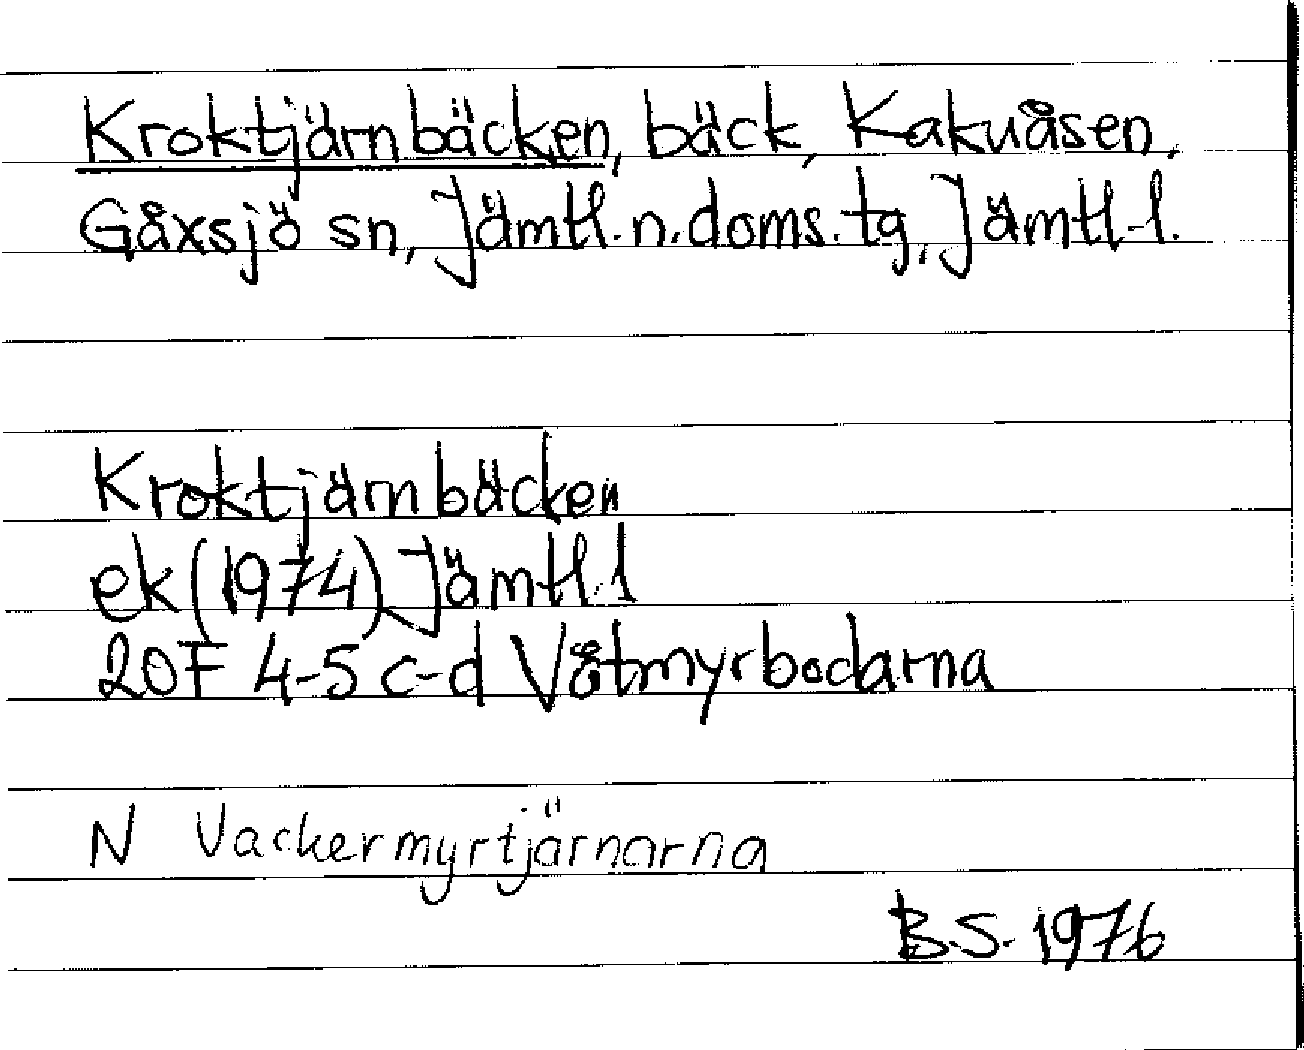 Kroktjärnbäcken, bäck, Kakuåsen,
Gåxsjö sn, Jämtl.n.doms.tg, Jämtl.l.
Kroktjärnbäcken
ek (1974) Jämtl.l
20F 4-5 c-d Våtmyrbodarna
N Vackermyrtjärnarna
B.S. 1976